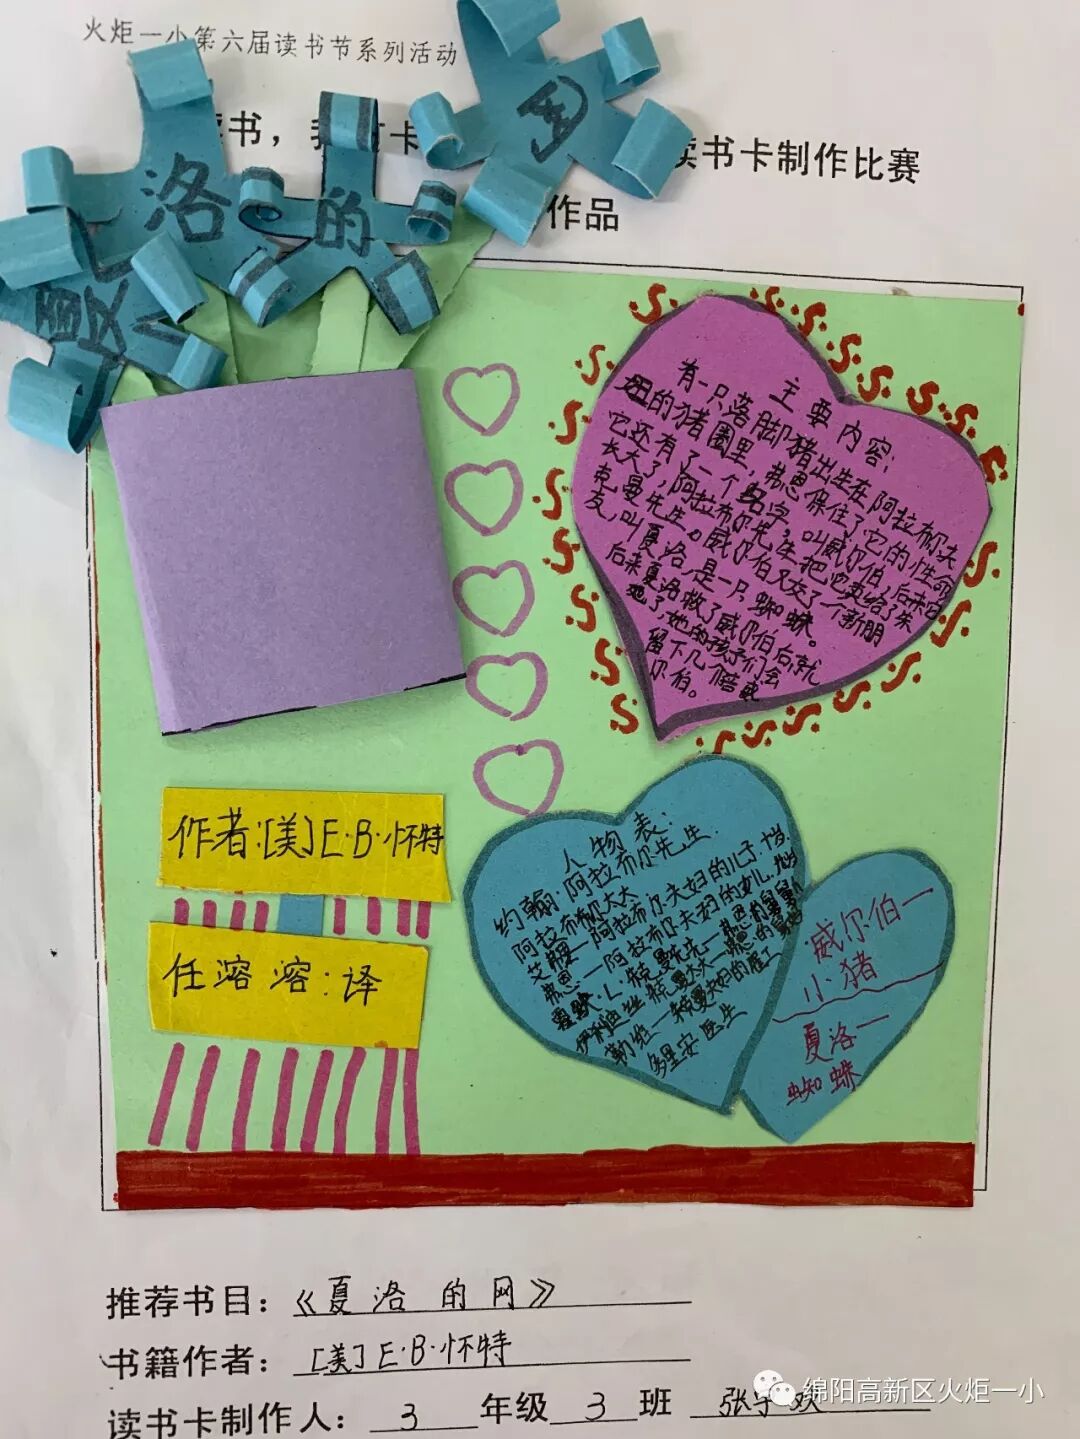 火炬一小第六届读书节系列活动
书，我 卡 读书卡制作比赛
作品
夏洛的网
主要内容：
有一只落脚猪出生在阿拉布尔夫
妇的猪圈里，弗恩保住了它的性命
它还有了一个名字，叫威尔伯，后来它
长大了，阿拉布尔先生把它卖给了朱
克曼先生。威尔伯又交了一个新朋
友，叫夏洛，是一只蜘蛛。
后来夏洛救了威尔伯后就
她了，她的孩子们会
留下几个陪威
尔伯。
作者：[美]E·B·怀特
任溶溶：译
人物表：
约翰·阿拉布尔先生
阿拉布尔太太
艾弗里—阿拉布尔夫妇的儿子，十岁
弗恩—阿拉布尔夫妇的女儿，
霍默·L·朱克曼先生—弗恩的舅舅
伊迪丝·朱克曼太太—弗恩的舅妈
勒维—朱克曼夫妇的雇工
多里安医生
威尔伯—
小猪
夏洛—
蜘蛛
推荐书目：《夏洛的网》
书籍作者：[美]E·B·怀特
读书卡制作人：3年级3班 张宇欢
绵阳高新区火炬一小